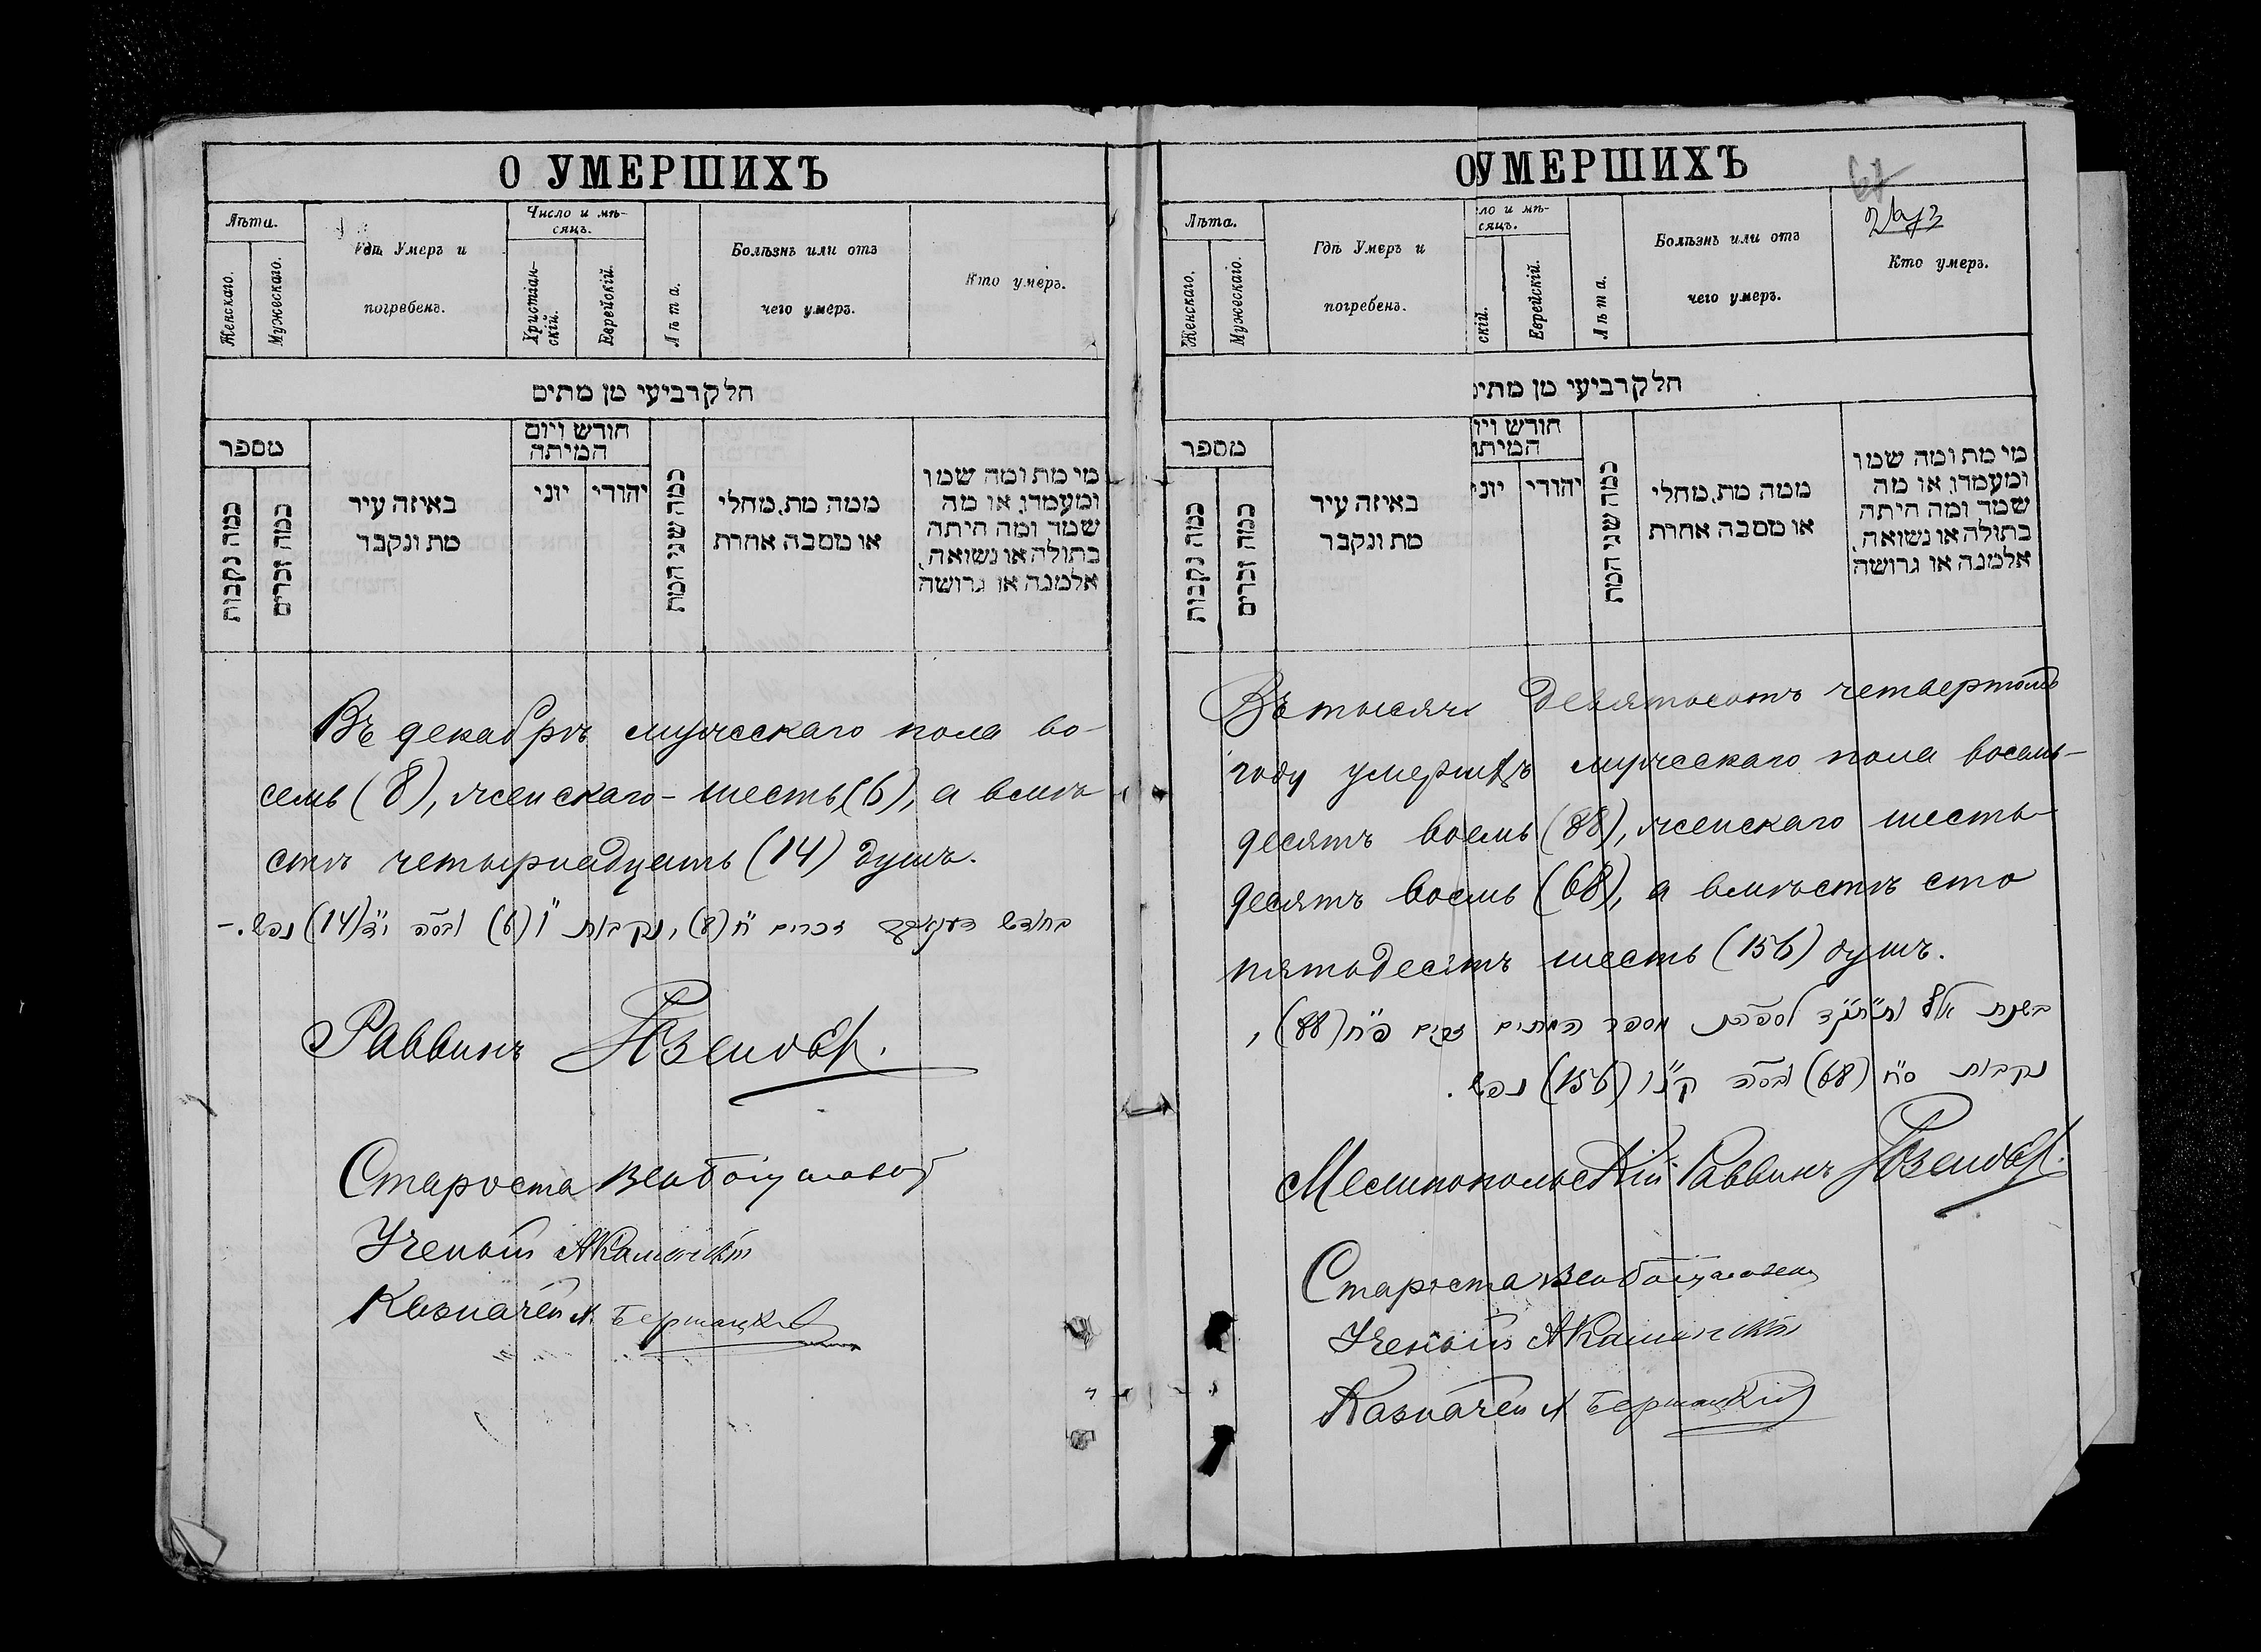 О УМЕРШИХЪ
Лѣта.
Женскаго.
Мужескаго.
Гдѣ Умеръ и
погребенъ.
Число и мѣ-
сяцъ.
Христіан-
скій.
Еврейскій.
Лѣта.
Болѣзнь или отъ
чего умеръ.
Кто умеръ.
חלק רביעי מן מתים
מספר
כמה נקבות
כמה זכרים
באיזה עיר
מת ונקבר
חודש ויום
המיתה
יוני
יהודי
כמה שני המת
ממה מת, מחלי
או מסבה אחרת
מי מת ומה שמו
ומעמדו, או מה
שמד ומה היתה
בתולה או נשואה,
אלמנה או גרושה
Въ декабрѣ мужескаго пола во-
семь (8), женскаго - шесть (6), а вмѣ-
стѣ четырнадцать (14) душъ.
בחודש דעקאבער זכרים ח" (8), נקבות ו" (6) ובסה י"ד (14) נפש. -
Раввинъ
Староста
Ученый А Каминскій
Казначей
О УМЕРШИХЪ
61
Лѣта.
Женскаго.
Мужескаго.
Гдѣ Умеръ и
погребенъ.
ло и мѣ-
сяцъ.
скій.
Еврейскій.
Лѣта.
Болѣзнь или отъ
чего умеръ.
Кто умеръ.
חלק רביעי מן מתים
מספר
כמה נקבות
כמה זכרים
באיזה עיר
מת ונקבר
חודש ויו
המיתה
יוני
יהודי
כמה שני המת
ממה מת, מחלי
או מסבה אחרת
מי מת ומה שמו
ומעמדו, או מה
שמד ומה היתה
בתולה או נשואה,
אלמנה או גרושה
Въ тысяча девятьсотъ четвертомъ
году умершихъ мужескаго пола восемь-
десятъ восемь (88), женскаго шесть-
десятъ восемь (68), а вмѣстѣ сто
пятьдесятъ шесть (156) душъ.
בשנת אלף מספר המתים זכרים פ"ח (88),
נקבות ס"ח (68) ובסה קנ"ו (156) נפש.
Мелитопольскій Раввинъ
Староста
Ученый А Каминскій
Казначей